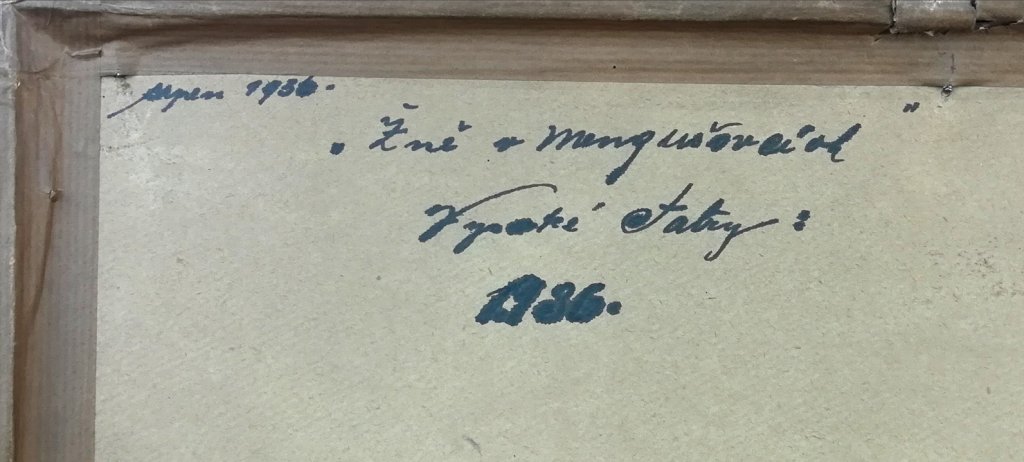 srpen 1936.
„Žně v Mengušovcích"
Vysoké Tatry:
1936.